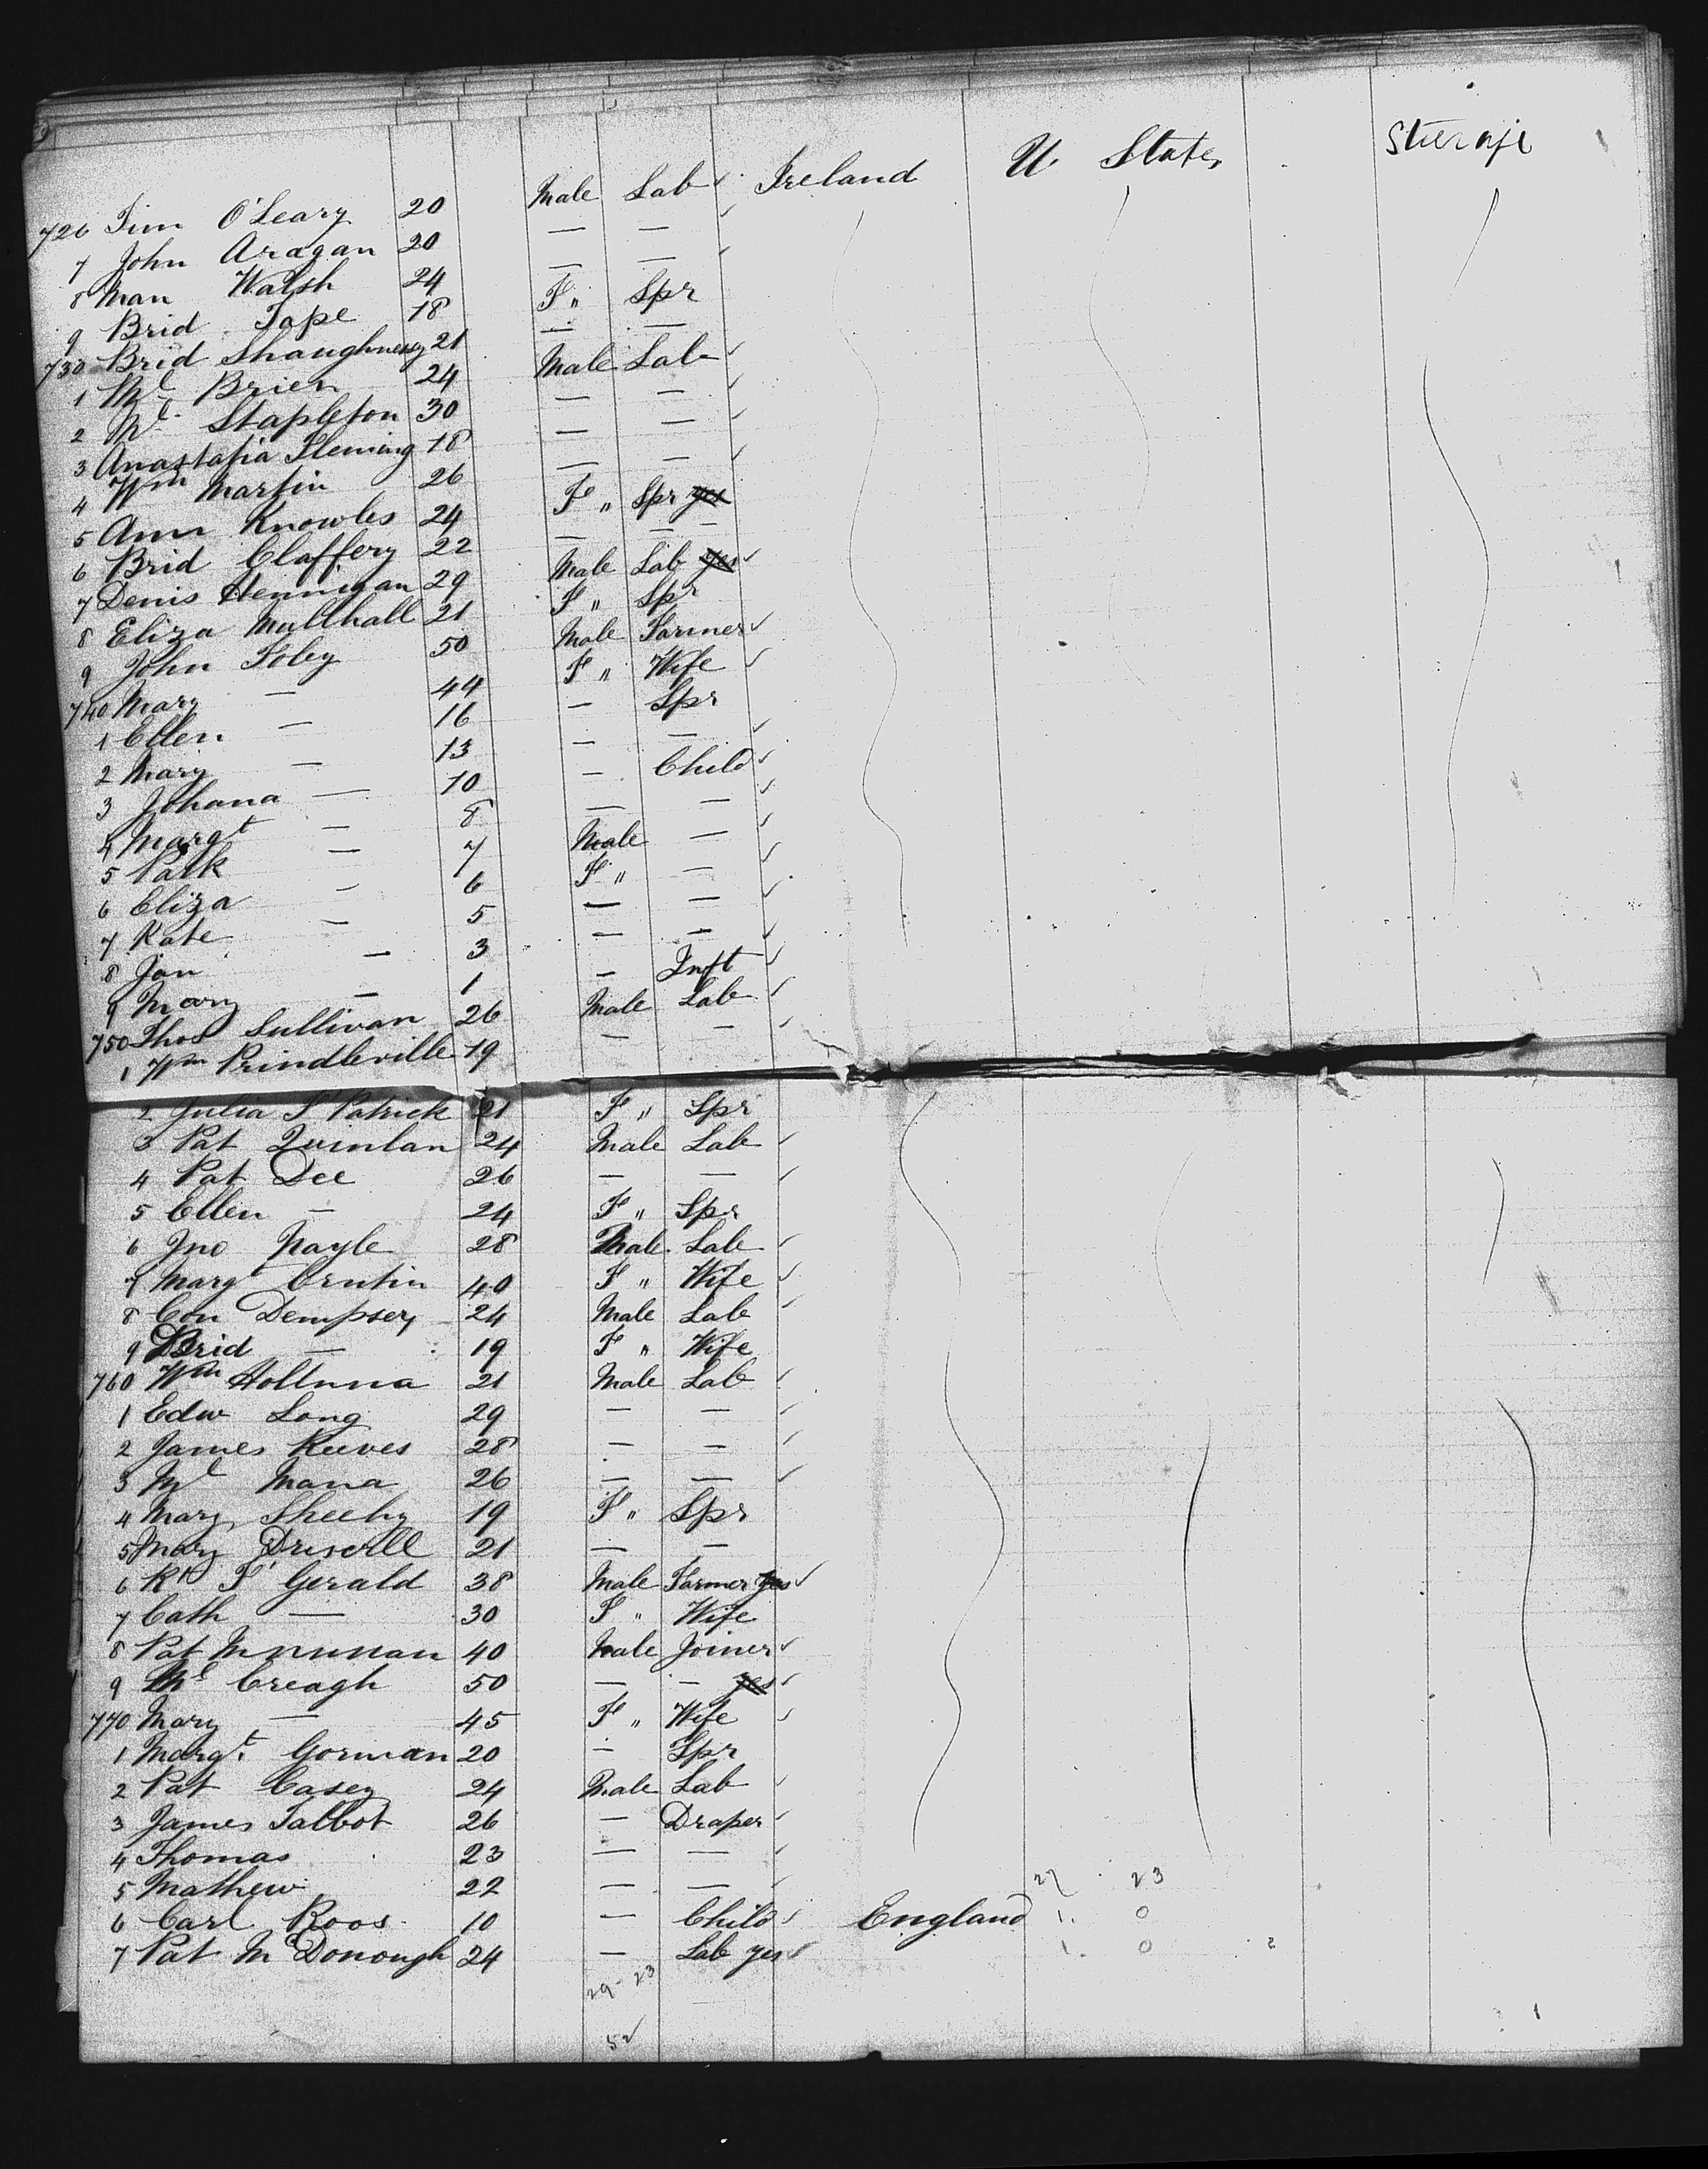 726 Tim O'Leary 20 Male Lab Ireland U. States Steerage
7 John Aragan 20 — —
8 Man Walsh 24 — —
9 Brid Tape 18 F " Spr
730 Brid Shaughnesey 21 — —
1 Ml Brien 24 Male Lab
2 Ml Stapleton 30 — —
3 Anastasia Fleming 18 — —
4 Wm Martin 26 — —
5 Ann Knowles 24 F " Spr yes
6 Brid Claffery 22 — —
7 Denis Hennigan 29 Male Lab yes
8 Eliza Mullhall 21 F " Spr
9 John Foley 50 Male Farmer
740 Mary — 44 F " Wife
1 Ellen — 16 — Spr
2 Mary — 13 — —
3 Johana — 10 — Child
4 Margt — 8 — —
5 Patk — 7 Male —
6 Eliza — 6 F " —
7 Kate — 5 — —
8 Jan — 3 — —
9 Mary — 1 — Inft
750 Thos Sullivan 26 Male Lab
1 Wm Prindleville 19 — —
2 Julia F Patrick 21 F " Spr
3 Pat Quinlan 24 Male Lab
4 Pat Dee 26 — —
5 Ellen — 24 F " Spr
6 Jno Nayle 28 Male Lab
7 Margt 40 F " Wife
8 Con Dempsey 24 Male Lab
9 Brid — 19 F " Wife
760 Wm 21 Male Lab
1 Edw Long 29 — —
2 James Reeves 28 — —
3 Ml Mana 26 — —
4 Mary Sheehy 19 F " Spr
5 Mary Driscoll 21 — —
6 Rd F' Gerald 38 Male Farmer yes
7 Cath — 30 F " Wife
8 Pat 40 Male Joiner
9 Ml Creagh 50 — — yes
770 Mary — 45 F " Wife
1 Margt Gorman 20 — Spr
2 Pat Casey 24 Male Lab
3 James Talbot 26 — Draper
4 Thomas 23 — —
5 Mathew 22 — — 27 23
6 Carl Roos 10 — Child England 1. 0
7 Pat McDonough 24 — Lab yes 1. 0 2
29 - 23
52